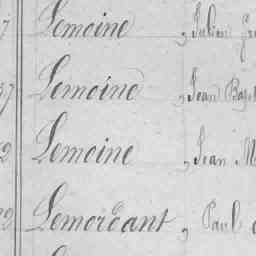 7 Lemoine, Julien
37 Lemoine, Jean
2 Lemoine, Jean M
2 Lemordant, Paul